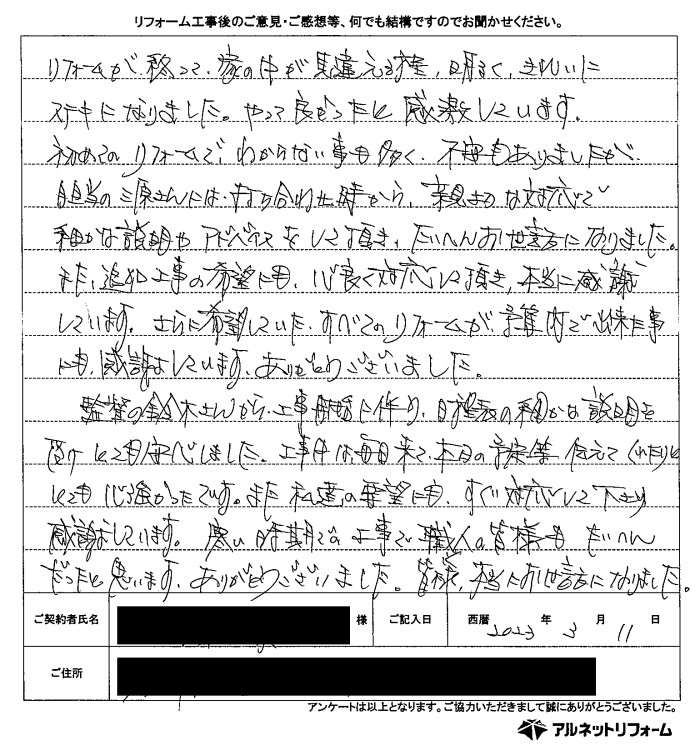 リフォーム工事後のご意見・ご感想等、何でも結構ですのでお聞かせください。
リフォームが終って、家の中が見違える程、明るく、きれいに
ステキになりました。やって良かったと感激しています。
初めてのリフォームで、わからない事も多く、不安もありましたが、
担当の三原さんには、打ち合わせ時から、親身な対応で
細かな説明やアドバイスをして頂き、たいへんお世話になりました。
また、追加工事の希望にも、心良く対応して頂き、本当に感謝
しています。さらに希望していた、すべてのリフォームが、予算内で出来た事
にも、感謝しています、ありがとうございました。
監督の鈴木さんから、工事開始に伴り、日程表の細かな説明を
受けとても安心しました。工事中は毎日来て、本日の予定等、伝えてくれたりと
とても心強かったです。また私達の要望にも、すぐ対応して下さり
感謝しています。寒い時期での工事で職人の皆様も たいへん
だったと思います、ありがとうございました。皆様、本当にお世話になりました。
ご契約者氏名 様 ご記入日 西暦 2023 年 3 月 11 日
ご住所
アンケートは以上となります。ご協力いただきまして誠にありがとうございました。
アルネットリフォーム